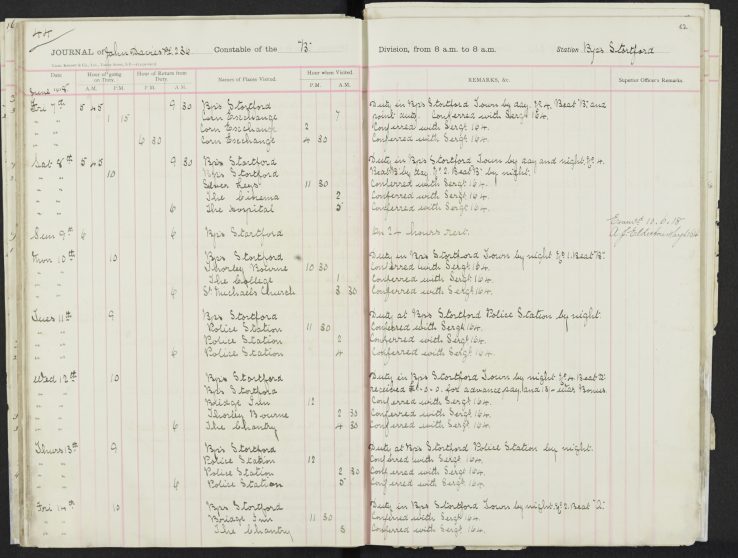 44
42
JOURNAL of John Davies P.C. 236 Constable of the "B" Division, from 8 a.m. to 8 a.m. Station Bps Stortford
Date Hour of going on Duty. Hour of Return from Duty. Names of Places Visited. Hour when Visited. REMARKS, &c. Superior Officer's Remarks.
A.M. P.M. P.M. A.M. P.M. A.M.
June 1918
Fri 7th 5 45 9 30 Bps Stortford Duty in Bps Stortford Town by day, No 4. Beat "B" and
" " 1 15 Corn Exchange 7 point duty. Conferred with Sergt 164.
" " Corn Exchange 2 Conferred with Sergt 164.
" " 6 30 Corn Exchange 4 30 Conferred with Sergt 164.
Sat 8th 5 45 9 30 Bps Stortford Duty in Bps Stortford Town by day and night, No 4.
" " 10 Bps Stortford Beat "B" by day, No 2. Beat "B" by night.
" " Seven Keys 11 30 Conferred with Sergt 164.
" " The Cinema 2 Conferred with Sergt 164.
" " 6 The Hospital 5 Conferred with Sergt 164.
Examd 10.6.18
Sun 9th 6 6 Bps Stortford On 24 hours rest. A.J. Sergt 164
Mon 10th 10 Bps Stortford Duty in Bps Stortford Town by night No 1. Beat "B".
" " Thorley Bourne 10 30 Conferred with Sergt 164.
" " The College 1 Conferred with Sergt 164.
" " 6 St Michaels Church 3 30 Conferred with Sergt 164.
Tues 11th 9 Bps Stortford Duty at Bps Stortford Police Station by night.
" " Police Station 11 30 Conferred with Sergt 164.
" " Police Station 2 Conferred with Sergt 164.
" " 6 Police Station 4 Conferred with Sergt 164.
Wed 12th 10 Bps Stortford Duty in Bps Stortford Town by night No 4. Beat "D"
" " Bps Stortford received £1-0-0. for advance pay, and 15/- War Bonus.
" " Bridge Inn 12 Conferred with Sergt 164.
" " Thorley Bourne 2 30 Conferred with Sergt 164.
" " 6 The Chantry 4 30 Conferred with Sergt 164.
Thurs 13th 9 Bps Stortford Duty at Bps Stortford Police Station by night.
" " Police Station 12 Conferred with Sergt 164.
" " Police Station 2 30 Conferred with Sergt 164.
" " 6 Police Station 5 Conferred with Sergt 164.
Fri 14th 10 Bps Stortford Duty in Bps Stortford Town by night, No 2. Beat "D".
" " Bridge Inn 11 30 Conferred with Sergt 164.
" " The Chantry 3 Conferred with Sergt 164.